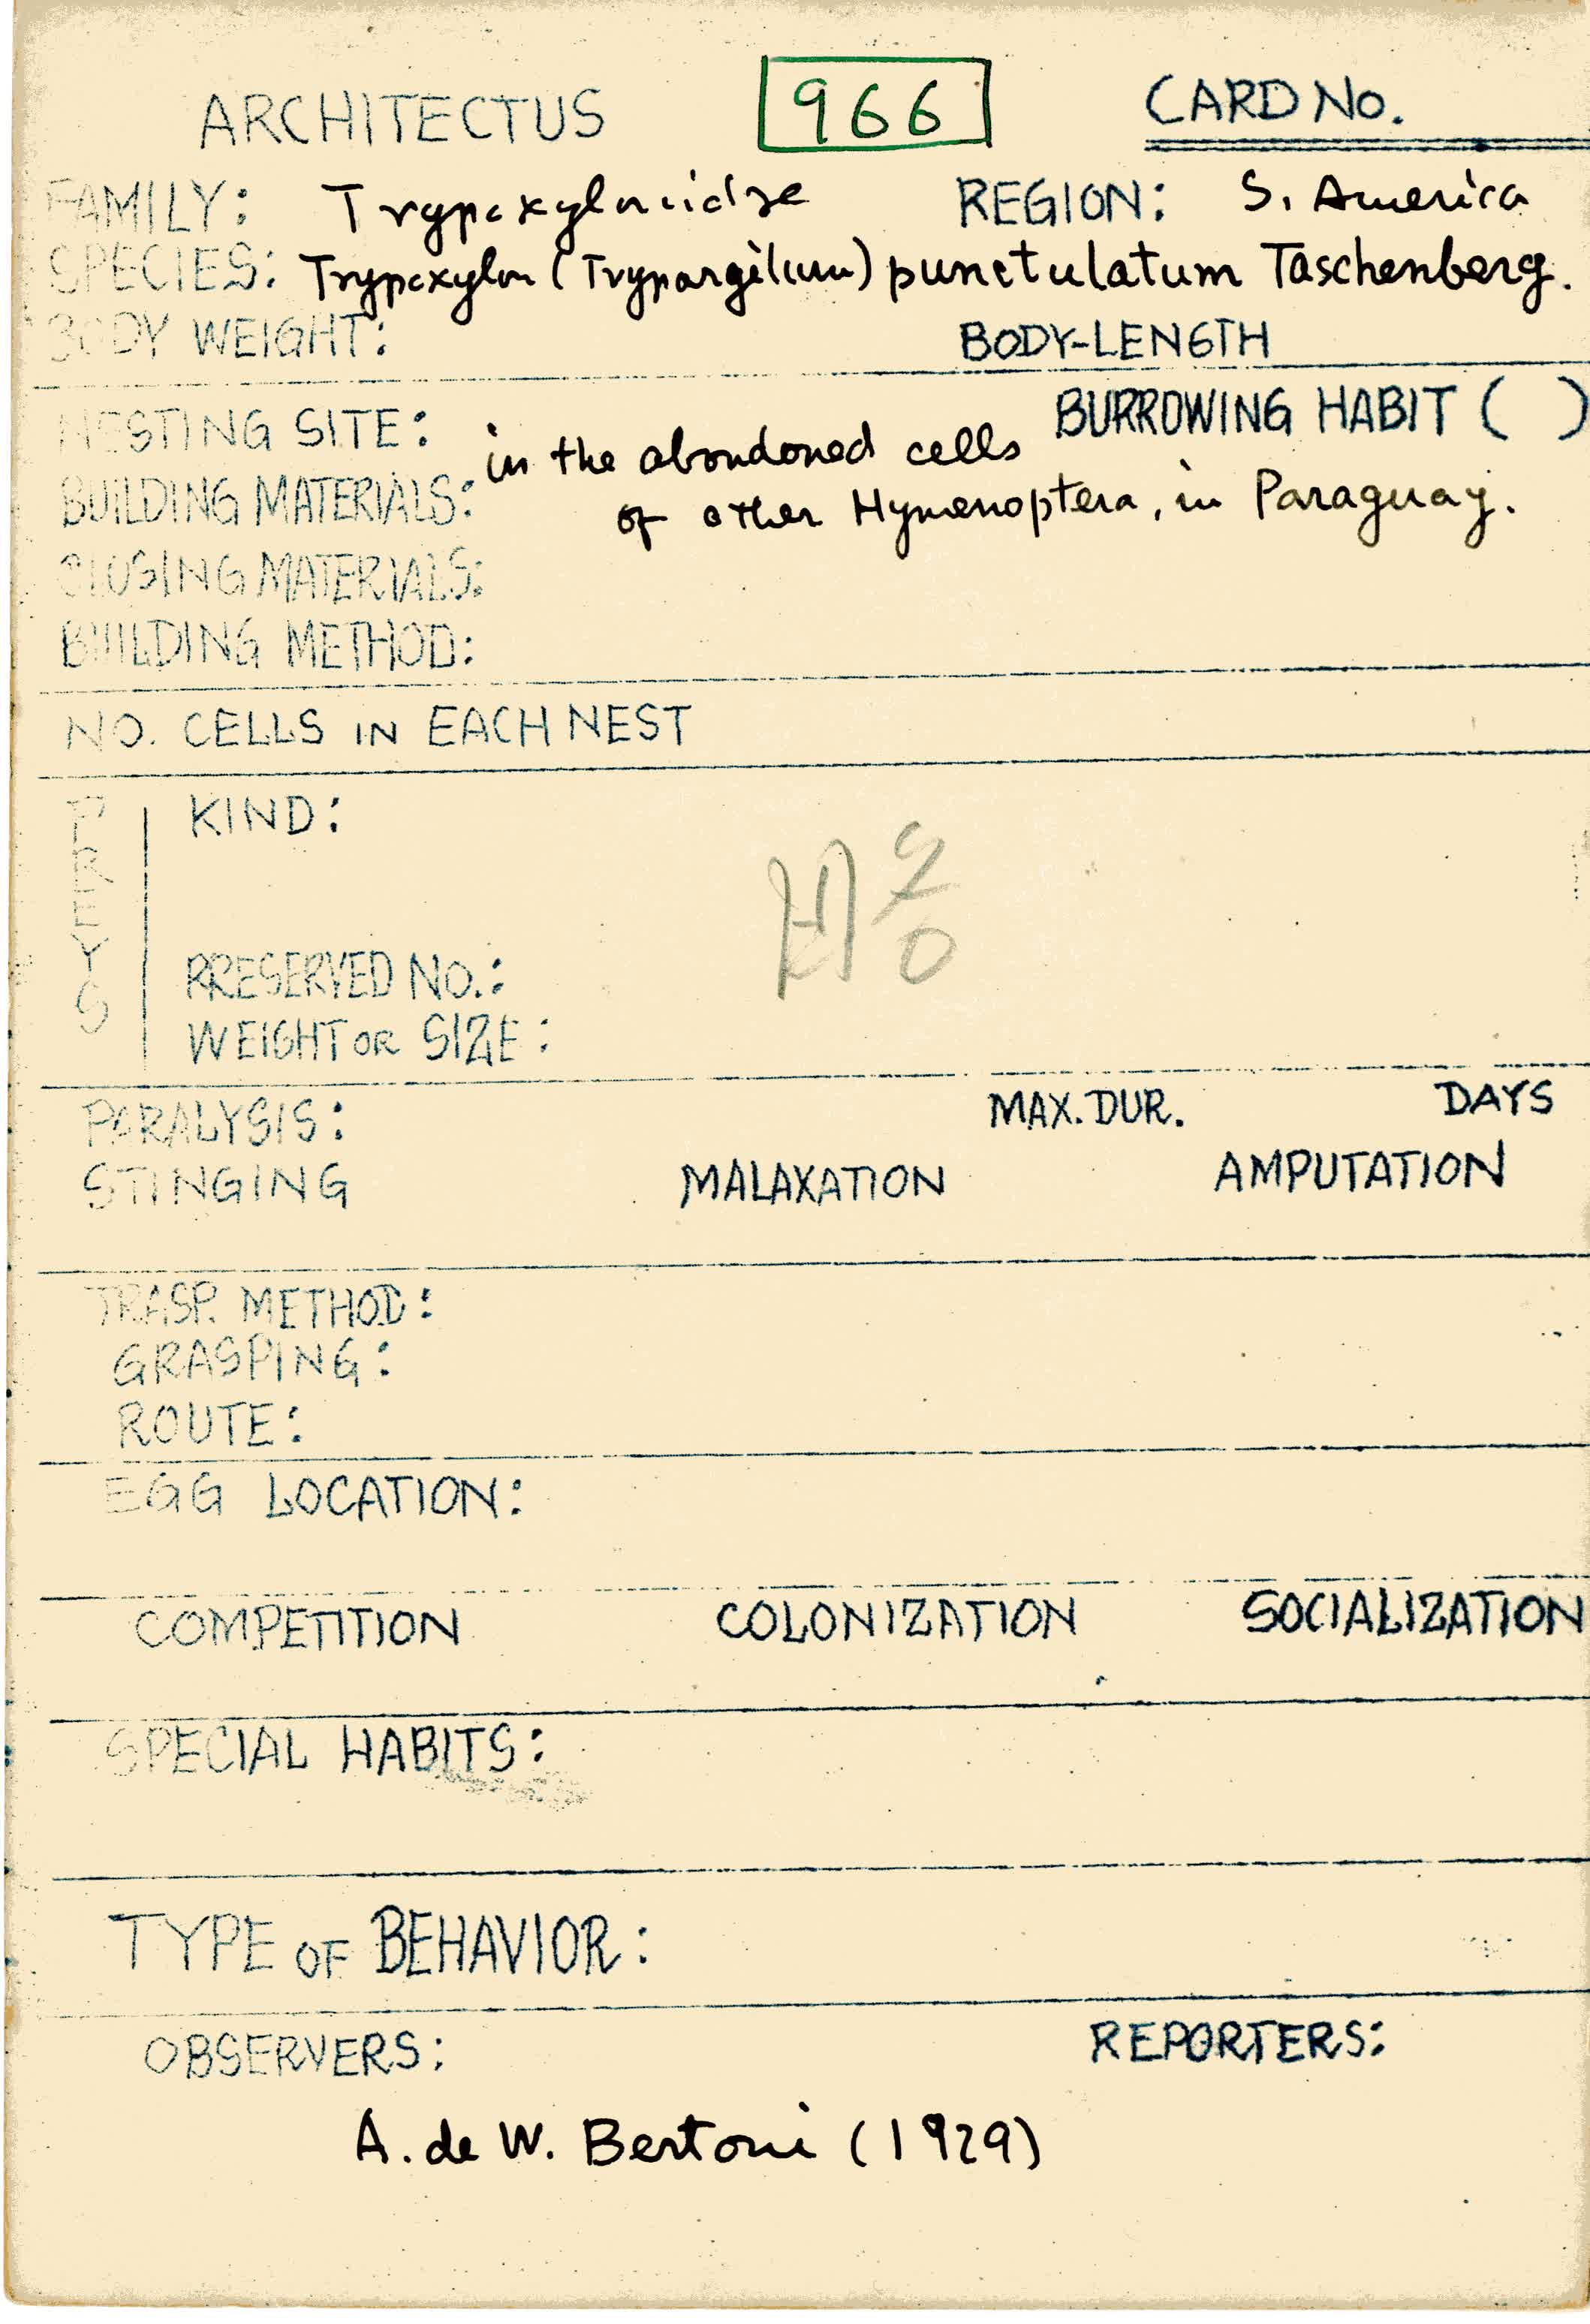 ARCHITECTUS 966 CARD No.
FAMILY: Trypoxylonidae REGION: S. America
SPECIES: Trypoxylon (Trypargilum) punctulatum Taschenberg.
BODY WEIGHT: BODY-LENGTH
NESTING SITE: in the abandoned cells BURROWING HABIT ( )
BUILDING MATERIALS: of other Hymenoptera, in Paraguay.
CLOSING MATERIALS:
BUILDING METHOD:
NO. CELLS IN EACH NEST
PREYS
KIND:
PRESERVED NO.:
WEIGHT OR SIZE:
PARALYSIS: MAX. DUR. DAYS
STINGING MALAXATION AMPUTATION
TRASP. METHOD:
GRASPING:
ROUTE:
EGG LOCATION:
COMPETITION COLONIZATION SOCIALIZATION
SPECIAL HABITS:
TYPE OF BEHAVIOR:
OBSERVERS: REPORTERS:
A. de W. Bertoni (1929)